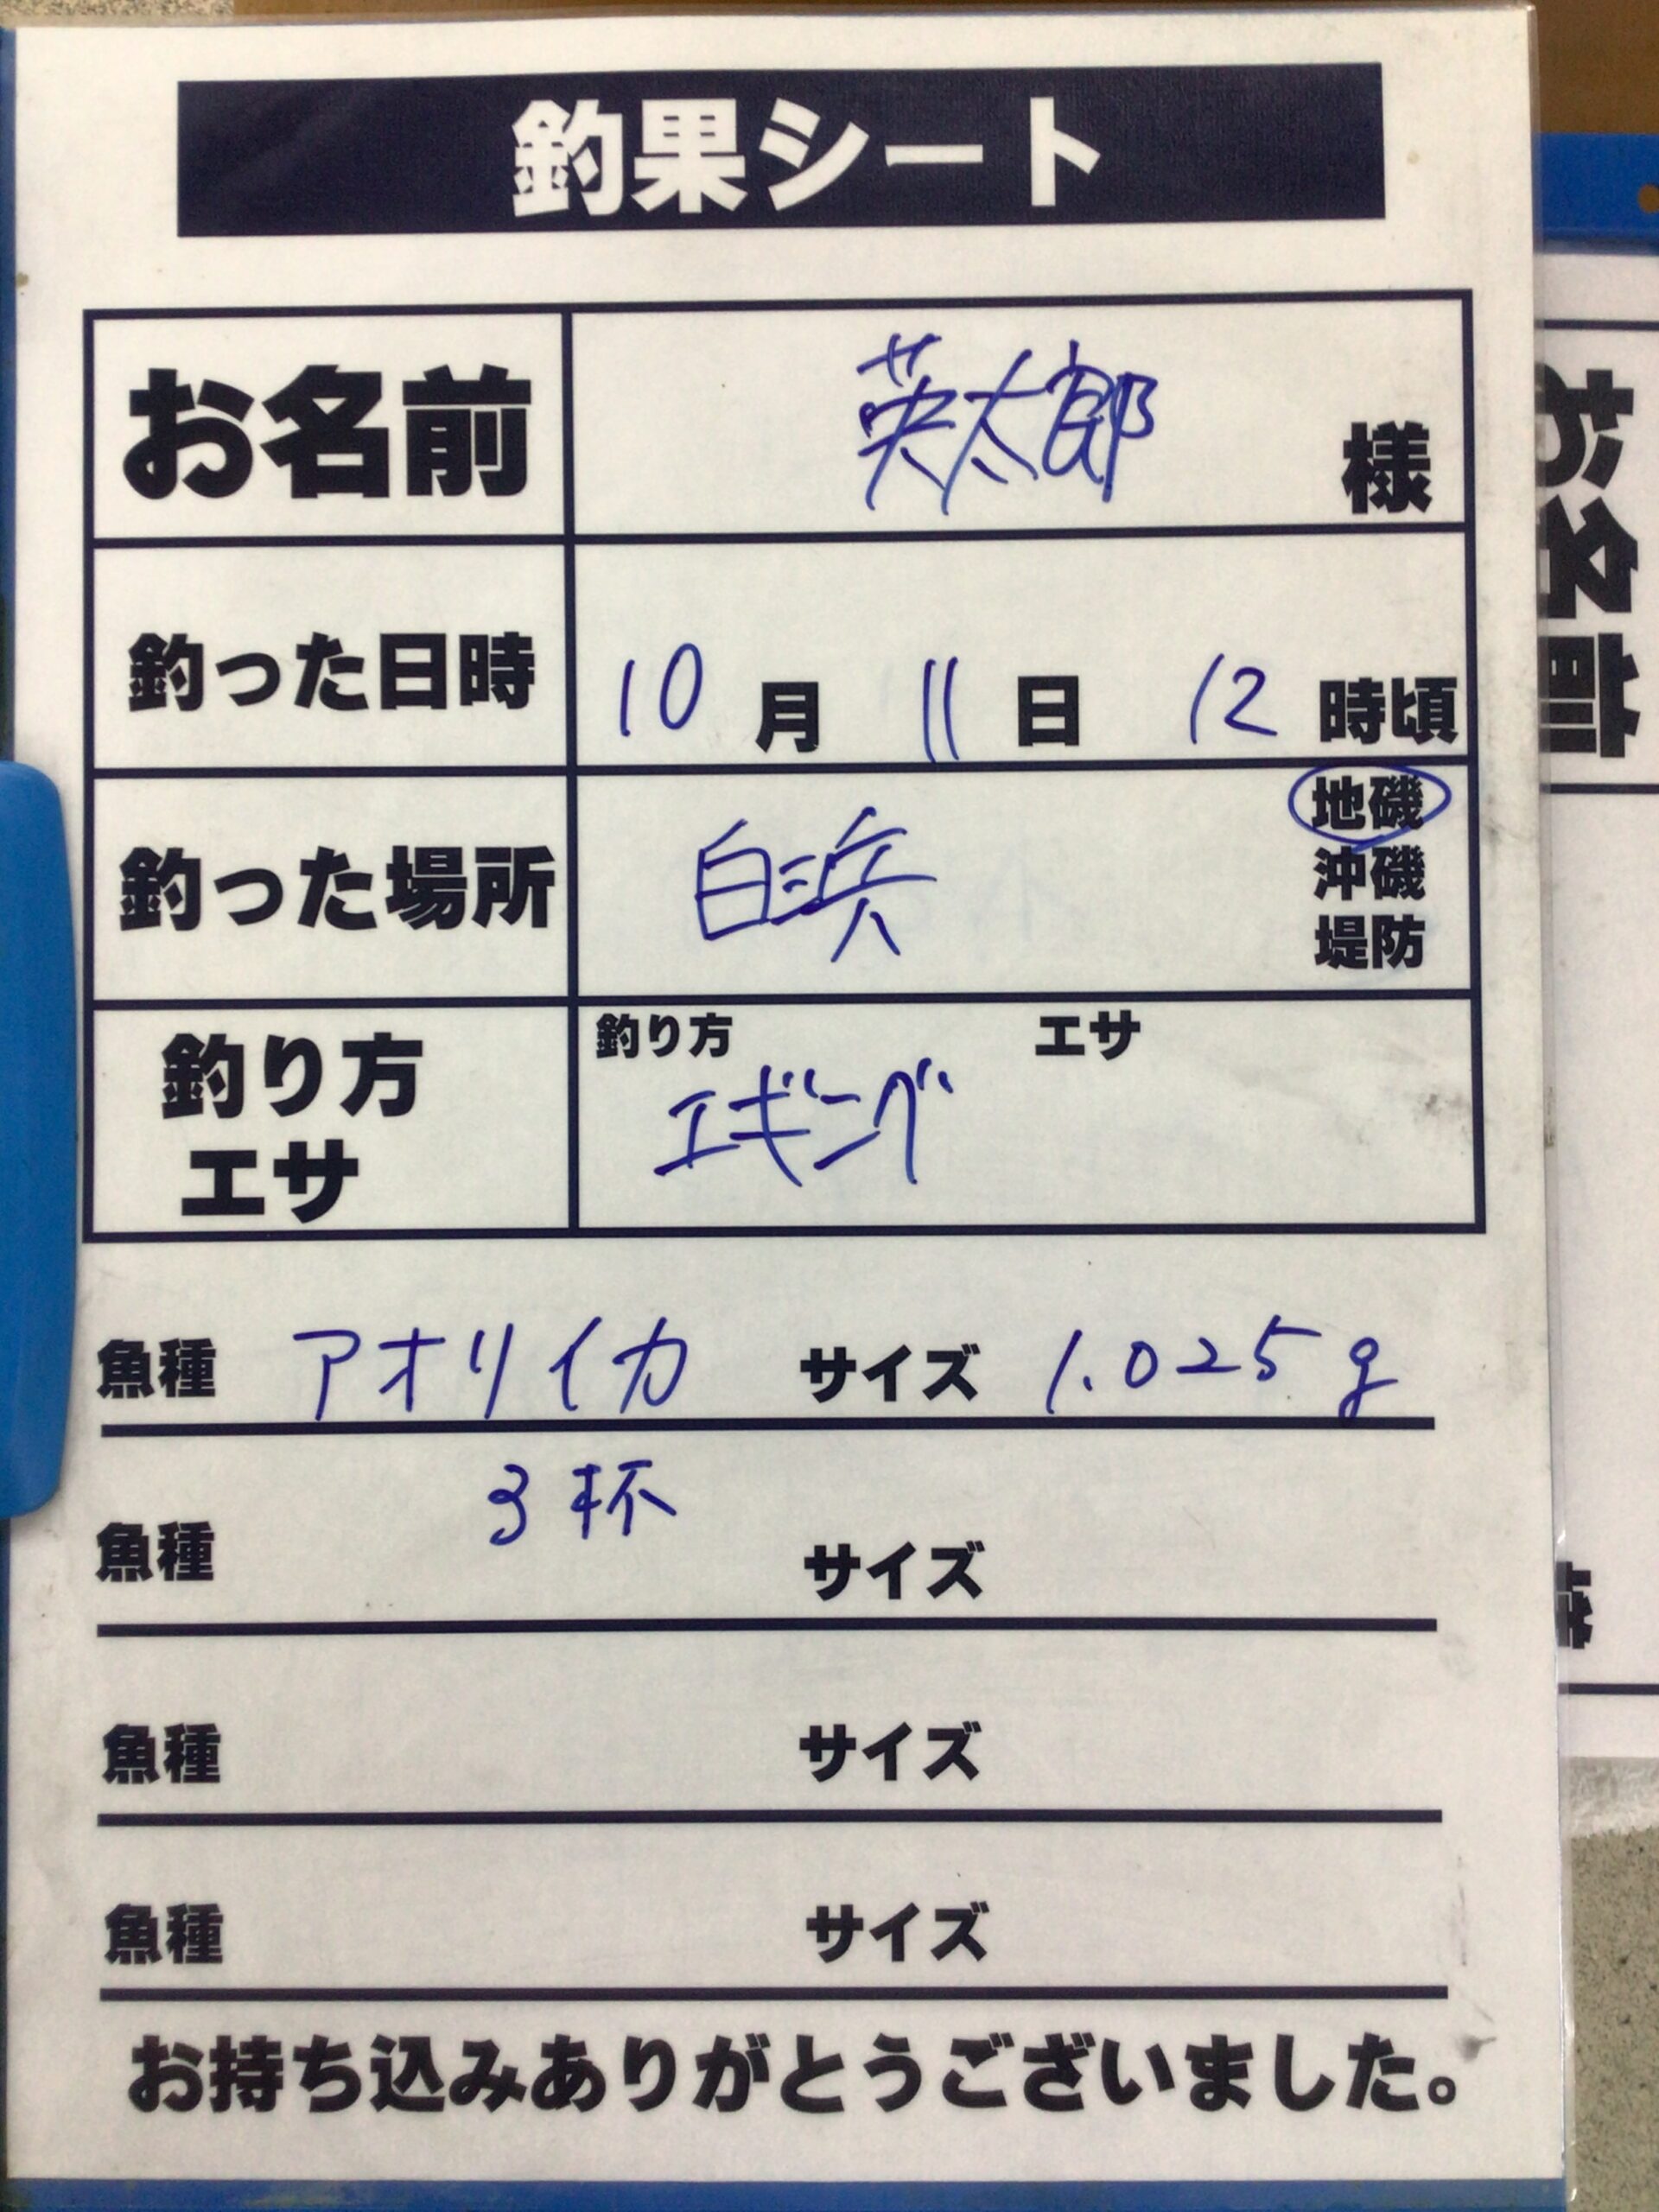 釣果シート
お名前 英太郎 様
釣った日時 10 月 11 日 12 時頃
釣った場所 白浜 地磯
沖磯
堤防
釣り方 エサ
釣り方 エギング
エサ
魚種 アオリイカ サイズ 1.025g
3杯
魚種 サイズ
魚種 サイズ
魚種 サイズ
お持ち込みありがとうございました。
お名前